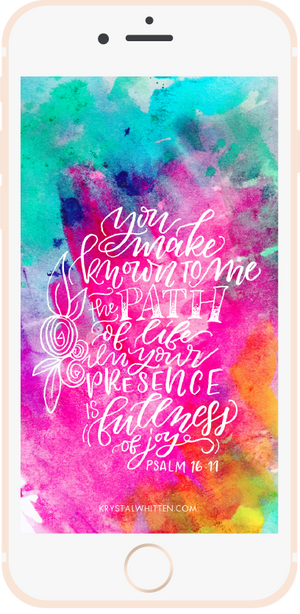 you
make
known to me
the PATH
of life
in your
PRESENCE
IS fullness
of joy
PSALM 16:11
KRYSTALWHITTEN.COM